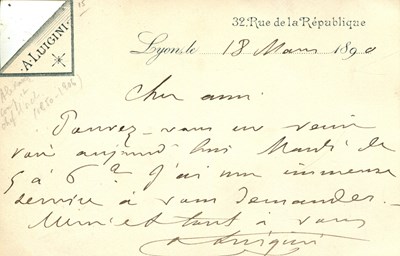 32, Rue de la République
A. LUIGINI
Lyon, le 18 Mars 1890
Cher ami.
Pouvez-vous me venir
voir aujourd'hui Mardi de
5 à 6 h J'ai un immense
service à vous demander.
Merci et tout à vous
A Luigini
(1850-1906)